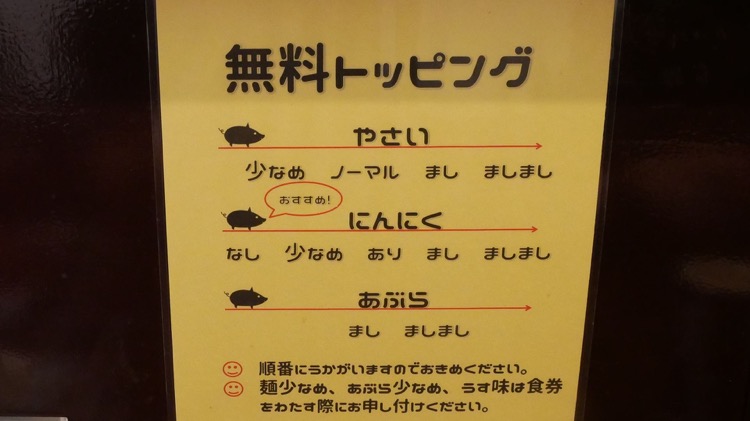 無料トッピング
やさい
少なめ ノーマル まし ましまし
おすすめ!
にんにく
なし 少なめ あり まし ましまし
あぶら
まし ましまし
順番にうかがいますのでおきめください。
麺少なめ、あぶら少なめ、うす味は食券
をわたす際にお申し付けください。